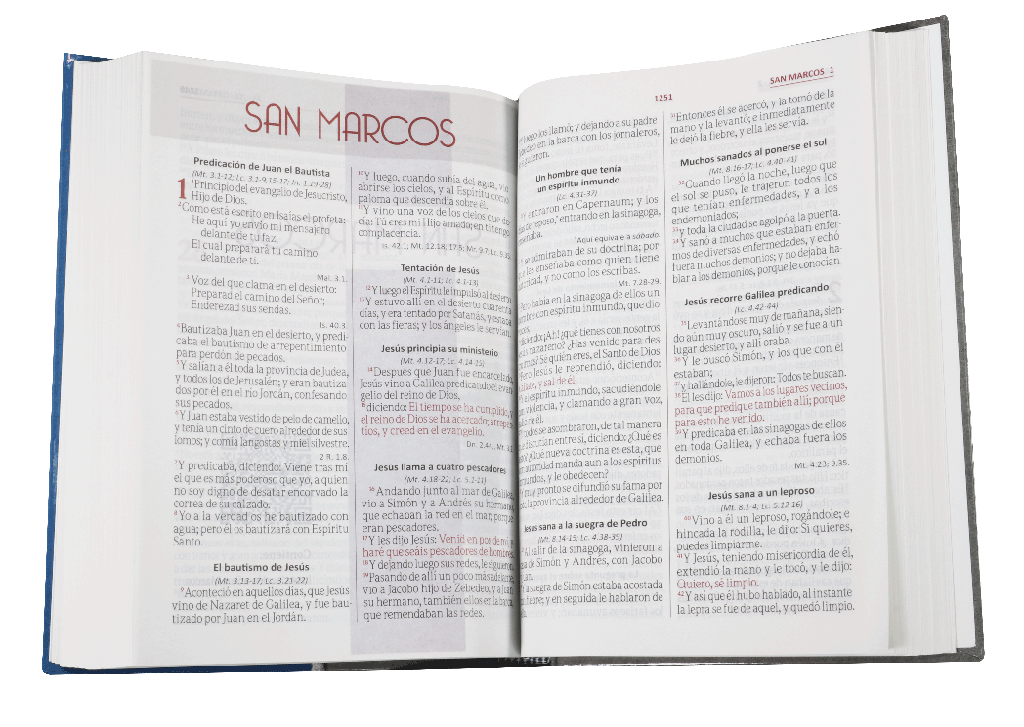 SAN MARCOS
Predicación de Juan el Bautista
(Mt. 3.1-12; Lc. 3.1-9,15-17; Jn. 1.19-28)
1 ¹Principio del evangelio de Jesucristo,
Hijo de Dios.
²Como está escrito en Isaías el profeta:
He aquí yo envío mi mensajero
delante de tu faz,
El cual preparará tu camino
delante de ti.
Mal. 3.1.
³Voz del que clama en el desierto:
Preparad el camino del Señor;
Enderezad sus sendas.
Is. 40.3.
⁴Bautizaba Juan en el desierto, y predi-
caba el bautismo de arrepentimiento
para perdón de pecados.
⁵Y salían a él toda la provincia de Judea,
y todos los de Jerusalén; y eran bautiza-
dos por él en el río Jordán, confesando
sus pecados.
⁶Y Juan estaba vestido de pelo de camello,
y tenía un cinto de cuero alrededor de sus
lomos; y comía langostas y miel silvestre.
2 R. 1.8.
⁷Y predicaba, diciendo: Viene tras mí
el que es más poderoso que yo, a quien
no soy digno de desatar encorvado la
correa de su calzado.
⁸Yo a la verdad os he bautizado con
agua; pero él os bautizará con Espíritu
Santo.
El bautismo de Jesús
(Mt. 3.13-17; Lc. 3.21-22)
⁹Aconteció en aquellos días, que Jesús
vino de Nazaret de Galilea, y fue bau-
tizado por Juan en el Jordán.
¹⁰Y luego, cuando subía del agua, vio
abrirse los cielos, y al Espíritu como
paloma que descendía sobre él.
¹¹Y vino una voz de los cielos que de-
cía: Tú eres mi Hijo amado; en ti tengo
complacencia.
Is. 42.1; Mt. 12.18; 17.5; Mr. 9.7; Lc. 9.35.
Tentación de Jesús
(Mt. 4.1-11; Lc. 4.1-13)
¹²Y luego el Espíritu le impulsó al desierto.
¹³Y estuvo allí en el desierto cuarenta
días, y era tentado por Satanás, y estaba
con las fieras; y los ángeles le servían.
Jesús principia su ministerio
(Mt. 4.12-17; Lc. 4.14-15)
¹⁴Después que Juan fue encarcelado,
Jesús vino a Galilea predicando el evan-
gelio del reino de Dios,
¹⁵diciendo: El tiempo se ha cumplido, y
el reino de Dios se ha acercado; arrepen-
tíos, y creed en el evangelio.
Dn. 2.44; Mt. 3.2
Jesús llama a cuatro pescadores
(Mt. 4.18-22; Lc. 5.1-11)
¹⁶Andando junto al mar de Galilea,
vio a Simón y a Andrés su hermano,
que echaban la red en el mar; porque
eran pescadores.
¹⁷Y les dijo Jesús: Venid en pos de mí, y
haré que seáis pescadores de hombres.
¹⁸Y dejando luego sus redes, le siguieron.
¹⁹Pasando de allí un poco más adelante,
vio a Jacobo hijo de Zebedeo, y a Juan
su hermano, también ellos en la barca,
que remendaban las redes.
1251
SAN MARCOS 1
luego los llamó; y dejando a su padre
en la barca con los jornaleros,
siguieron.
Un hombre que tenía
un espíritu inmundo
(Lc. 4.31-37)
entraron en Capernaum; y los
de reposo, entrando en la sinagoga,
Aquí equivale a sábado.
se admiraban de su doctrina; por
les enseñaba como quien tiene
y no como los escribas.
Mt. 7.28-29.
Pero había en la sinagoga de ellos un
con espíritu inmundo, que dio
diciendo: ¡Ah! ¿qué tienes con nosotros
nazareno? ¿Has venido para des-
Sé quién eres, el Santo de Dios
Pero Jesús le reprendió, diciendo:
y sal de él.
el espíritu inmundo, sacudiéndole
violencia, y clamando a gran voz,
de él.
todos se asombraron, de tal manera
discutían entre sí, diciendo: ¿Qué es
¿Qué nueva doctrina es esta, que
autoridad manda aun a los espíritus
inmundos, y le obedecen?
muy pronto se difundió su fama por
la provincia alrededor de Galilea.
Jesús sana a la suegra de Pedro
(Mt. 8.14-15; Lc. 4.38-39)
Al salir de la sinagoga, vinieron a
de Simón y Andrés, con Jacobo
la suegra de Simón estaba acostada
y en seguida le hablaron de
³¹Entonces él se acercó, y la tomó de la
mano y la levantó; e inmediatamente
le dejó la fiebre, y ella les servía.
Muchos sanados al ponerse el sol
(Mt. 8.16-17; Lc. 4.40-41)
³²Cuando llegó la noche, luego que
el sol se puso, le trajeron todos los
que tenían enfermedades, y a los
endemoniados;
³³y toda la ciudad se agolpó a la puerta.
³⁴Y sanó a muchos que estaban enfer-
mos de diversas enfermedades, y echó
fuera muchos demonios; y no dejaba ha-
blar a los demonios, porque le conocían.
Jesús recorre Galilea predicando
(Lc. 4.42-44)
³⁵Levantándose muy de mañana, sien-
do aún muy oscuro, salió y se fue a un
lugar desierto, y allí oraba.
³⁶Y le buscó Simón, y los que con él
estaban;
³⁷y hallándole, le dijeron: Todos te buscan.
³⁸Él les dijo: Vamos a los lugares vecinos,
para que predique también allí; porque
para esto he venido.
³⁹Y predicaba en las sinagogas de ellos
en toda Galilea, y echaba fuera los
demonios.
Mt. 4.23; 9.35.
Jesús sana a un leproso
(Mt. 8.1-4; Lc. 5.12-16)
⁴⁰Vino a él un leproso, rogándole; e
hincada la rodilla, le dijo: Si quieres,
puedes limpiarme.
⁴¹Y Jesús, teniendo misericordia de él,
extendió la mano y le tocó, y le dijo:
Quiero, sé limpio.
⁴²Y así que él hubo hablado, al instante
la lepra se fue de aquel, y quedó limpio.